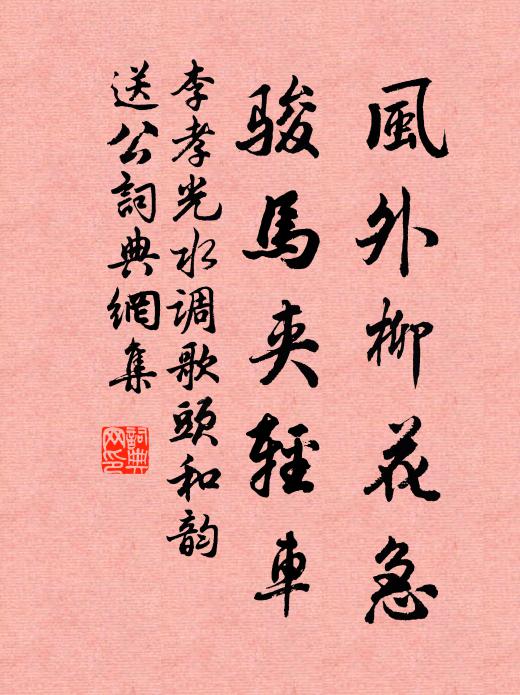 風外柳花急
駿馬夹輕車
李孝光水调歌頭和韵
送公詞典網集
詞典
网印